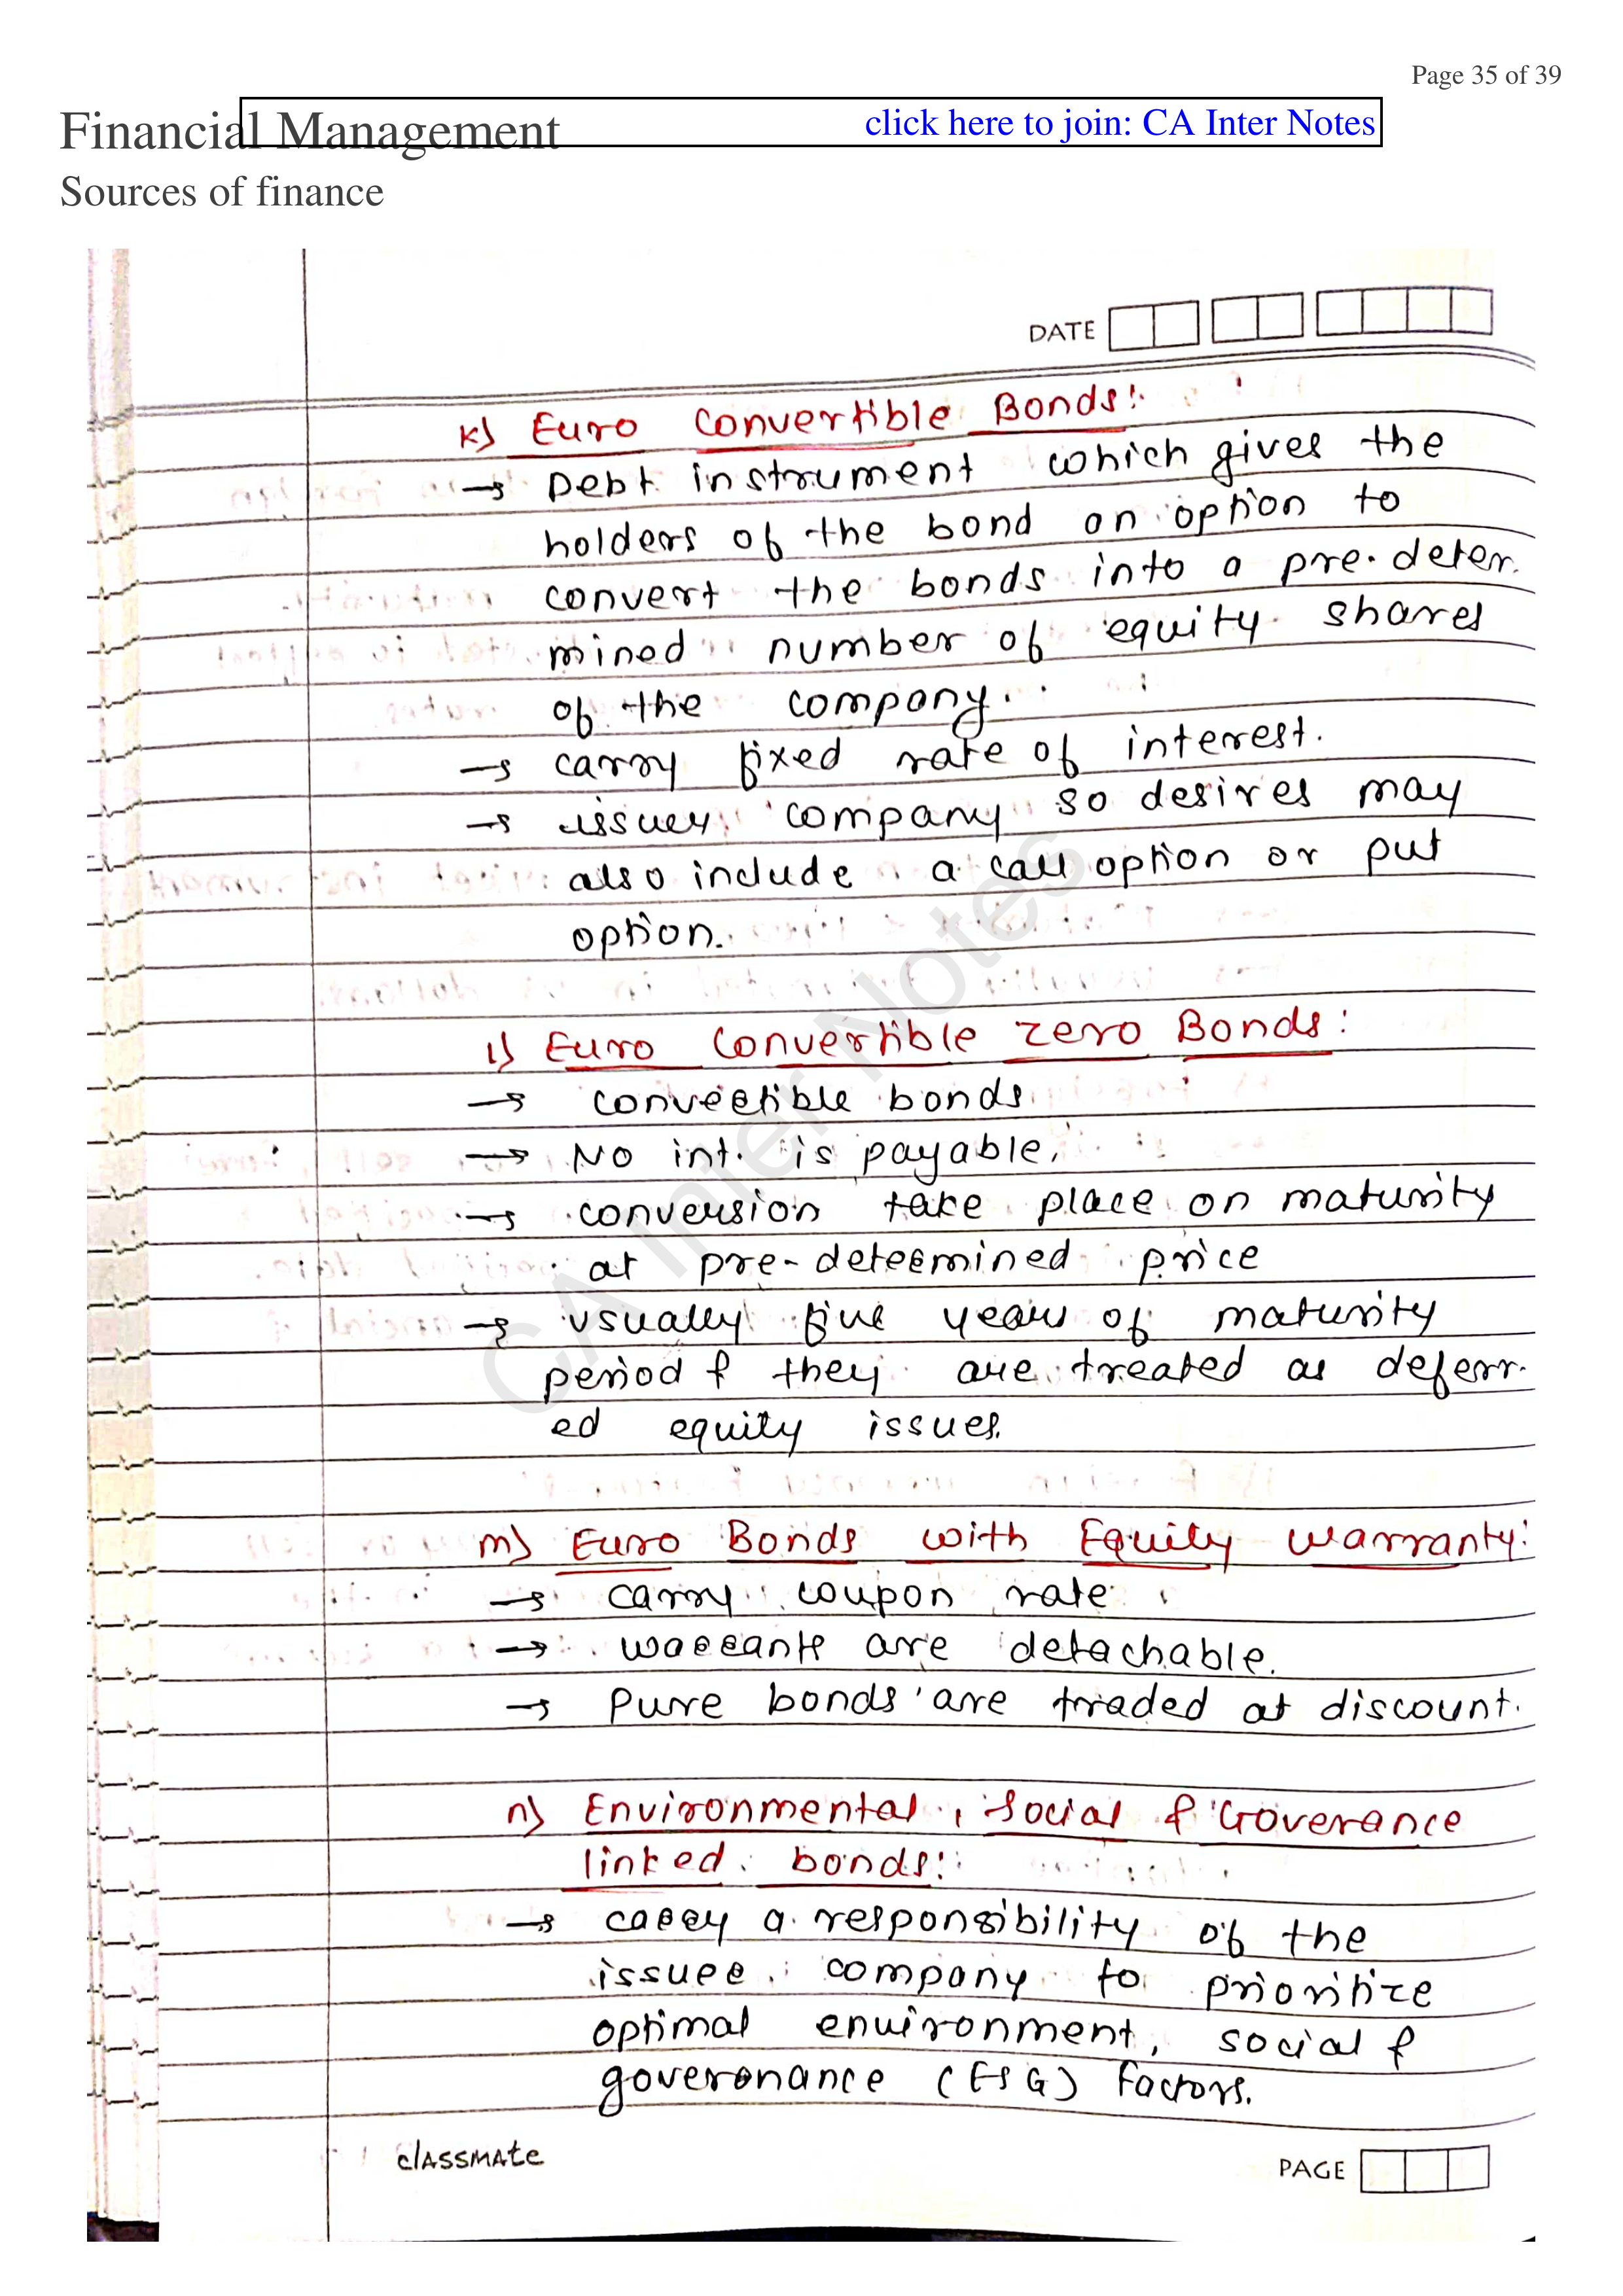 Page 35 of 39
Financial Management
click here to join: CA Inter Notes
Sources of finance
DATE
k) Euro Convertible Bonds:
→ Debt instrument which gives the
holders of the bond an option to
convert the bonds into a pre-deter-
mined number of equity shares
of the company.
→ carry fixed rate of interest.
→ issuer company so desires may
also include a call option or put
option.
l) Euro Convertible zero Bonds:
→ convertible bonds
→ No int. is payable.
→ conversion take place on maturity
at pre-determined price
→ usually five years of maturity
period & they are treated as deferr-
ed equity issues.
m) Euro Bonds with Equity warranty:
→ carry coupon rate
→ warrants are detachable.
→ Pure bonds are traded at discount.
n) Environmental, Social & Goverance
linked bonds:
→ carry a responsibility of the
issuer company to prioritize
optimal environment, social &
goverenance (ESG) factors.
CA Inter Notes
classmate
PAGE